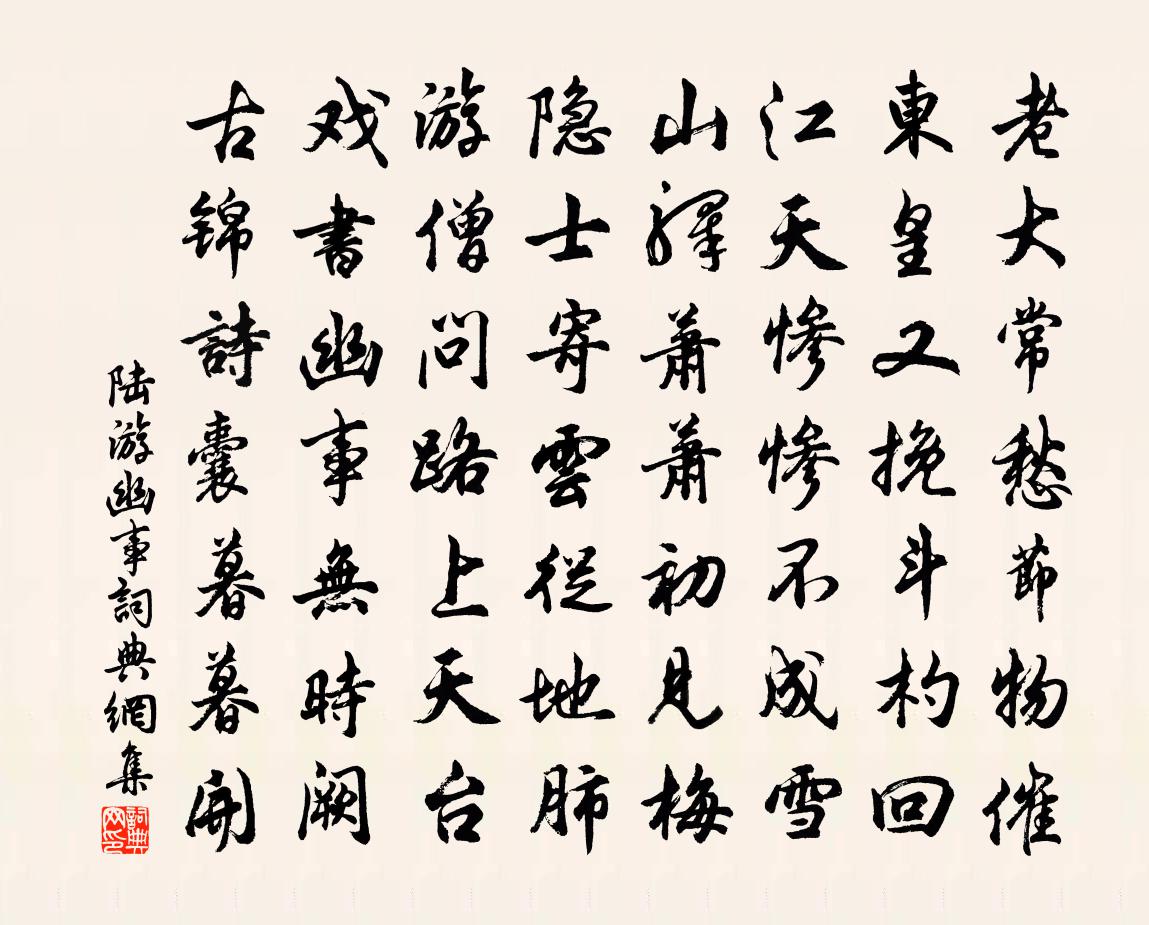 老大常愁節物催
東皇又挽斗杓回
江天惨惨不成雪
山驛蕭蕭初見梅
隐士寄雲從地肺
游僧問路上天台
戏書幽事無時闕
古锦詩囊暮暮開
陆游幽事詞典網集
詞典網印